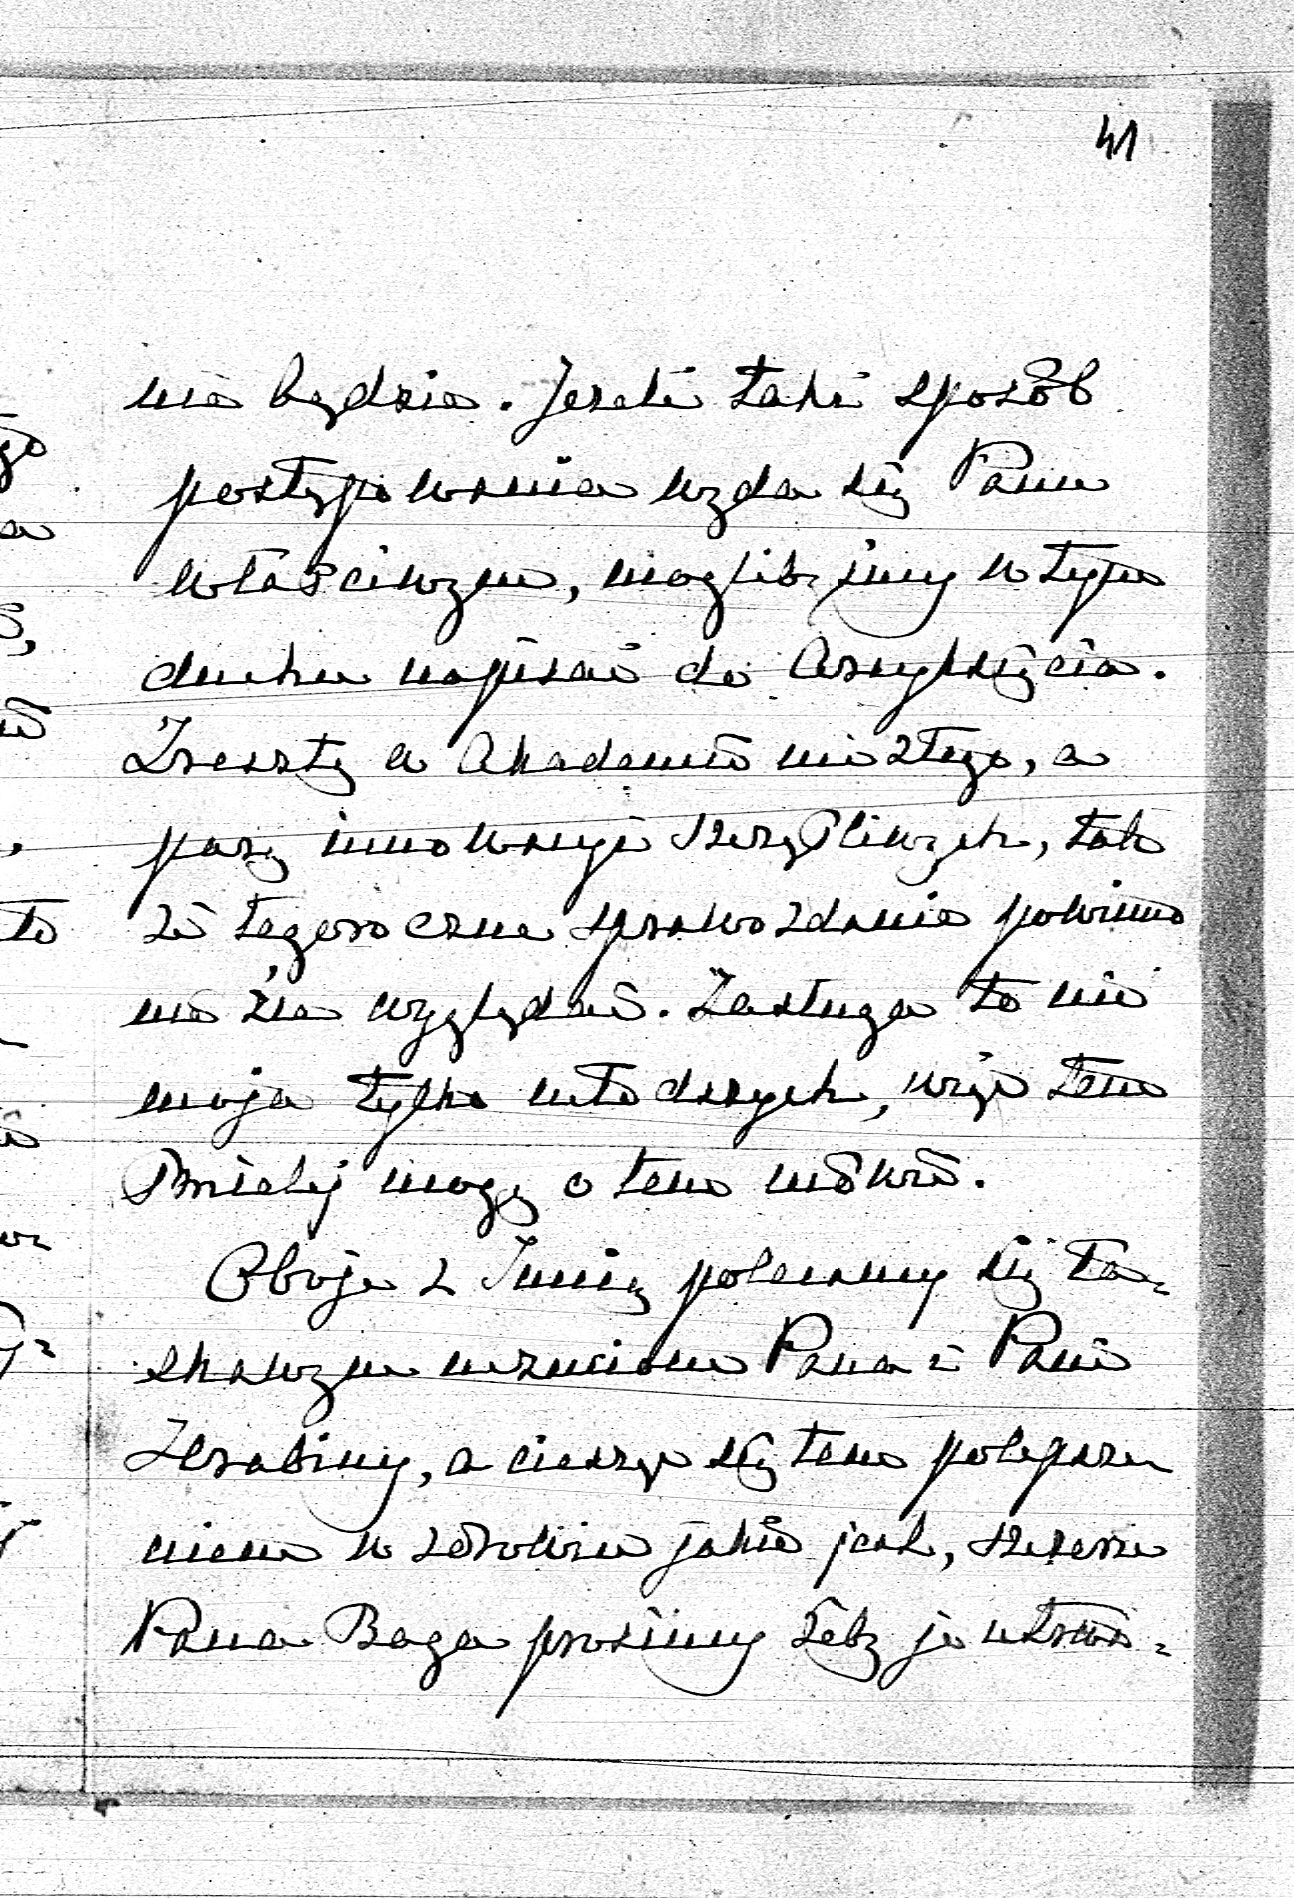 41
nie będzie. Jeżeli taki sposób
postępowania wyda się Panu
właściwym, moglibyśmy w tym
duchu napisać do Arcyksięcia.
Zresztą w Akademii nie złego, a
parę inowacyi szczęśliwych, tak
że tegoroczne sprawozdanie powinno
nieźle wyglądać. Zasługa to nie
moja tylko młodszych, więc tem
śmielej mogę o tem mówić.
Oboje z Imcią polecamy się ła-
skawym uczuciom Pana i Pani
Hrabiny, a ciesząc się tem polepsze
niem w zdrowiu jakie jest, szczerze
Pana Boga prosimy żeby je utrwa-